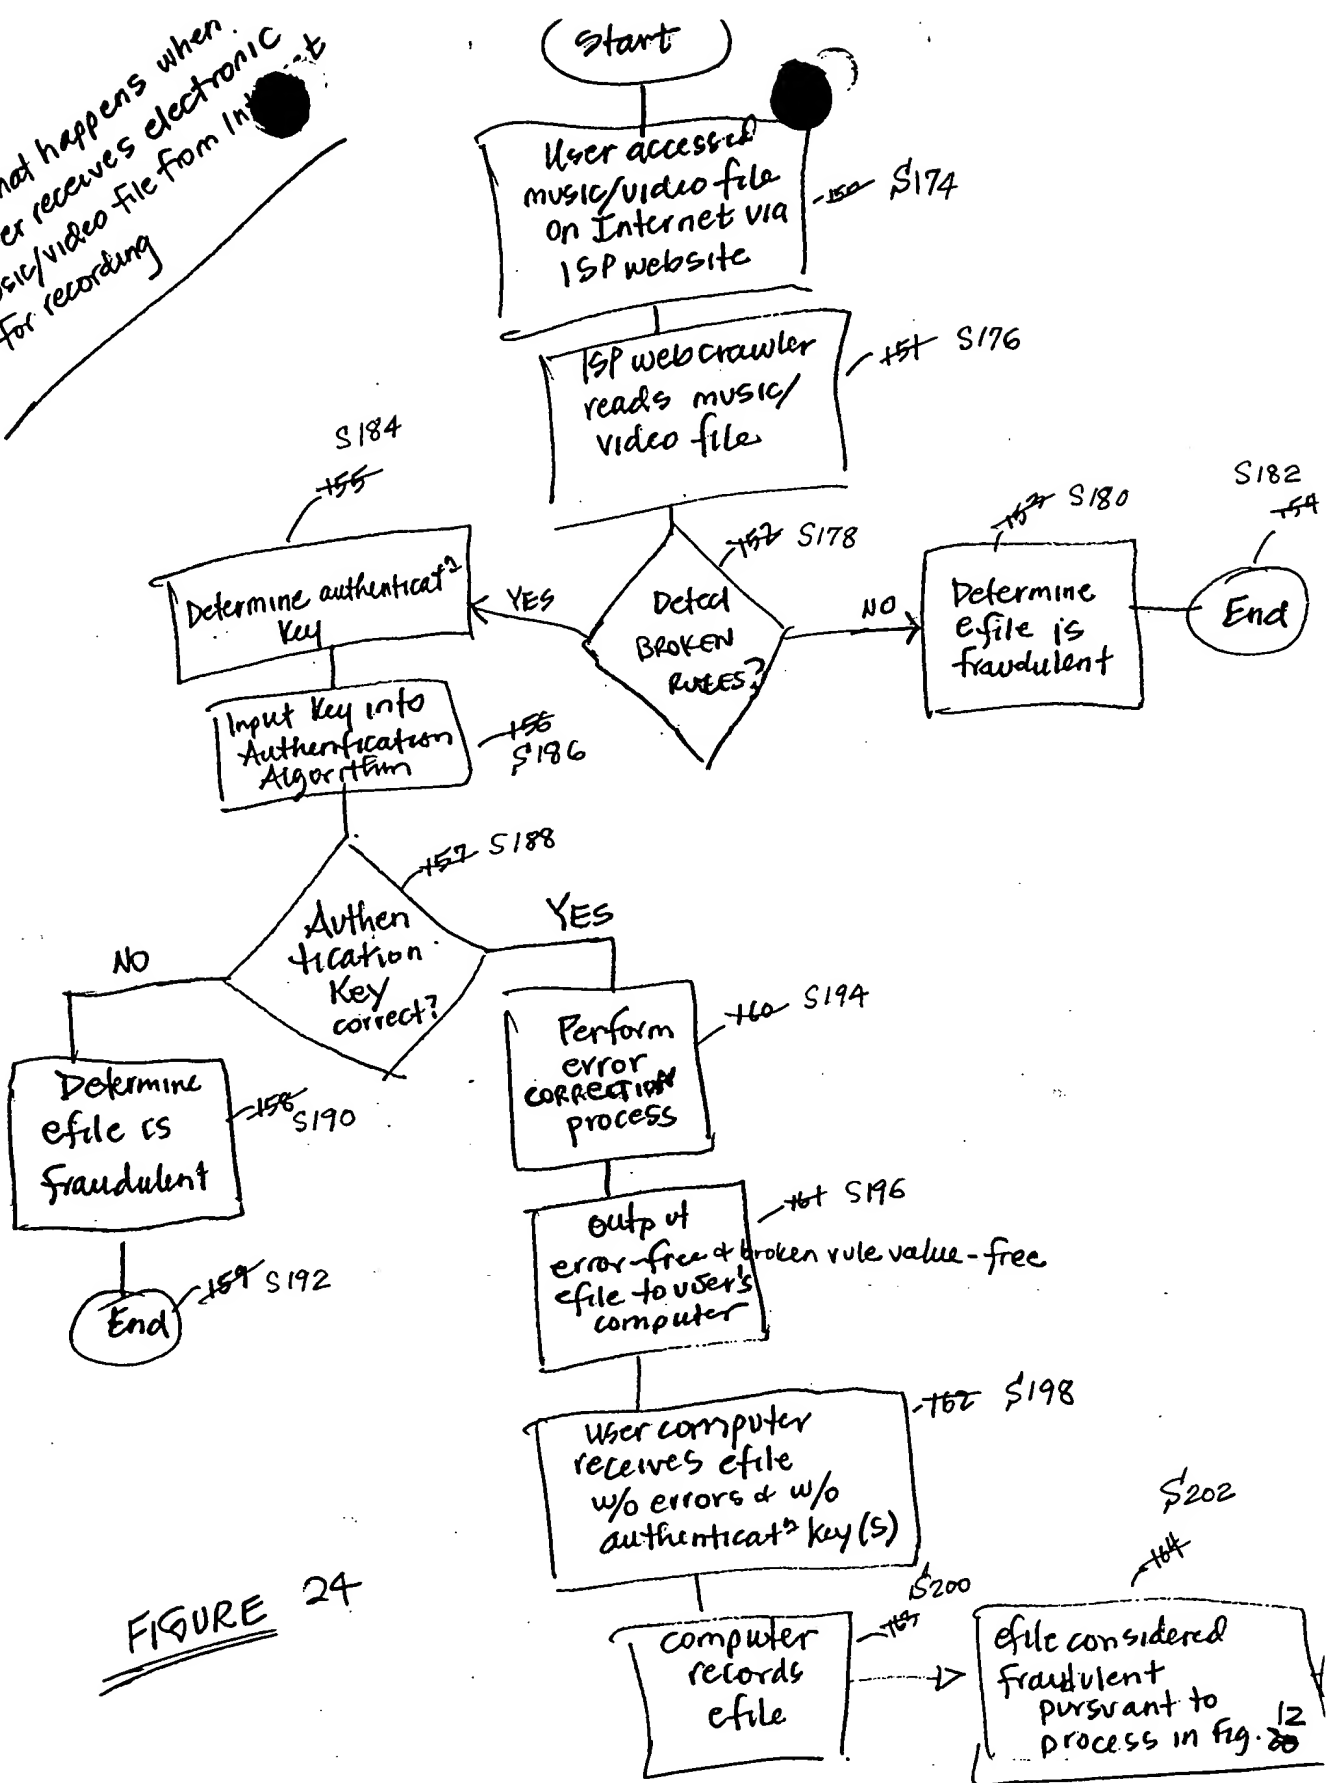 hat happens when
er receives electronic
sic/video file from
for recording
Start
User accesses
music/video file
on Internet via
ISP website
150 S174
ISP webcrawler
reads music/
video file
151 S176
Detect
BROKEN
RULES?
152 S178
YES
NO
Determine
efile is
fraudulent
153 S180
End
S182
154
S184
155
Determine authenticatn
Key
Input Key into
Authentication
Algorithm
156
S186
Authen
tication
Key
correct?
157 S188
NO
YES
Determine
efile is
fraudulent
158
S190
End
159 S192
Perform
error
CORRECTION
process
160 S194
output
error-free & broken rule value-free
efile to user's
computer
161 S196
user computer
receives efile
w/o errors & w/o
authenticatn key(s)
162 S198
computer
records
efile
S200
163
S202
164
efile considered
fraudulent
pursuant to
process in fig. 12
FIGURE 24